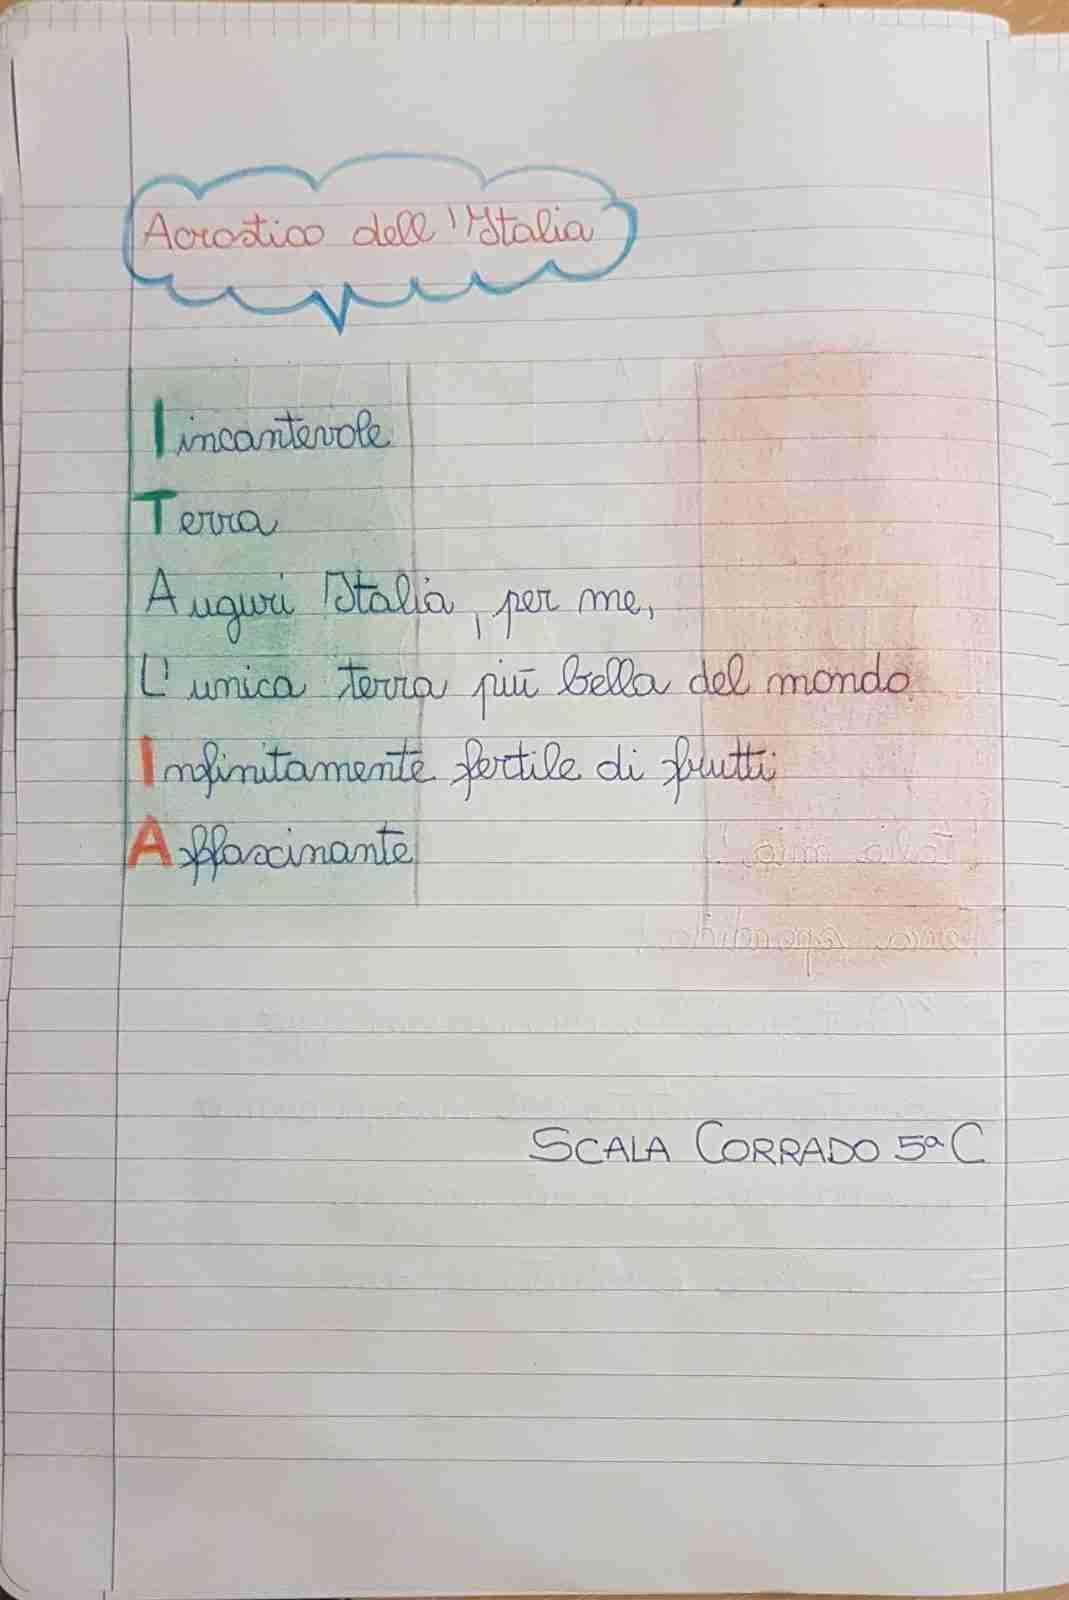 Acrostico dell'Italia
I incantevole
Terra
Auguri Italia, per me,
L'unica terra più bella del mondo
Infinitamente fertile di frutti
Affascinante
SCALA CORRADO 5ª C